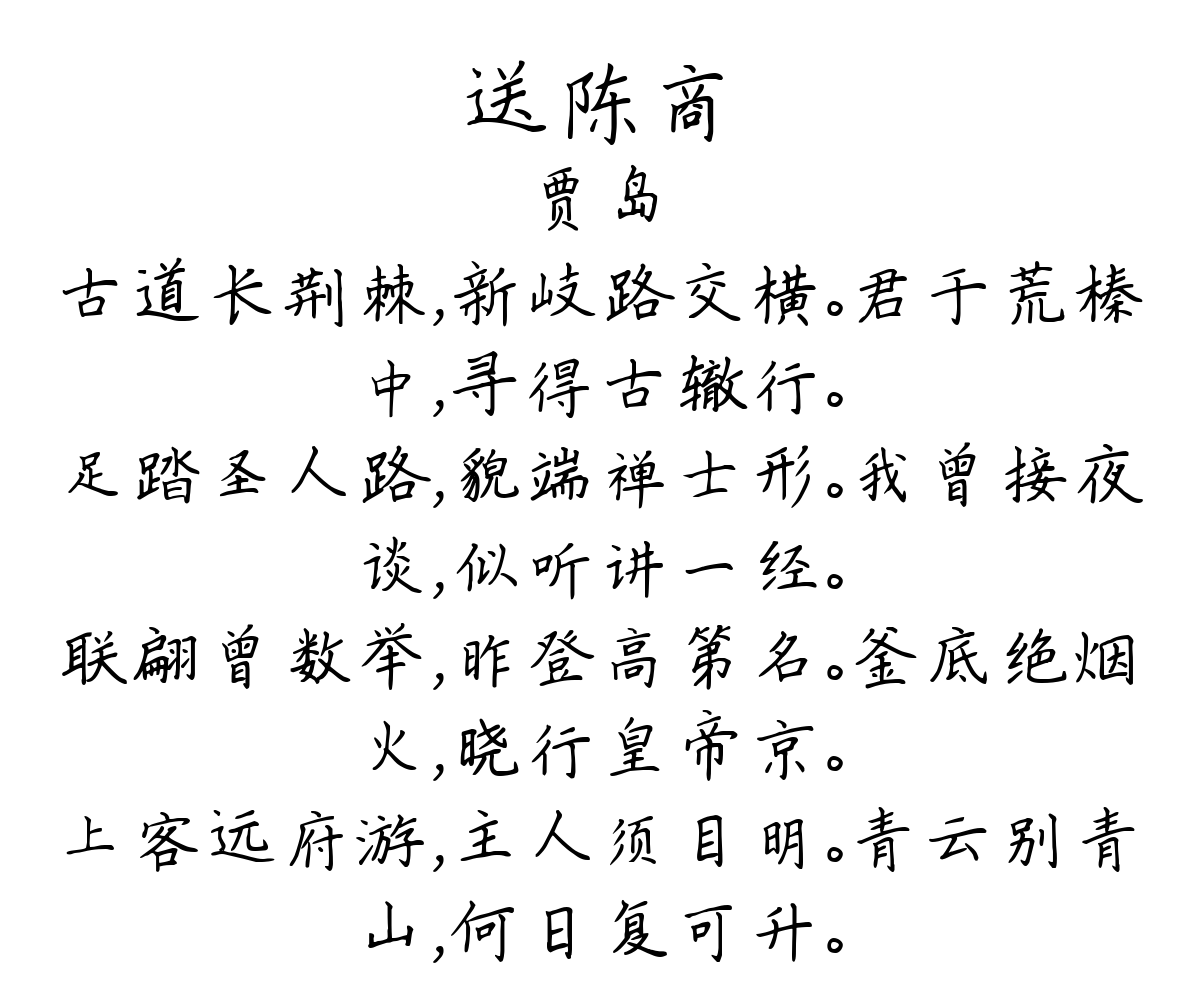 送陈商
贾岛
古道长荆棘,新岐路交横。君于荒榛
中,寻得古辙行。
足踏圣人路,貌端禅士形。我曾接夜
谈,似听讲一经。
联翩曾数举,昨登高第名。釜底绝烟
火,晓行皇帝京。
上客远府游,主人须目明。青云别青
山,何日复可升。